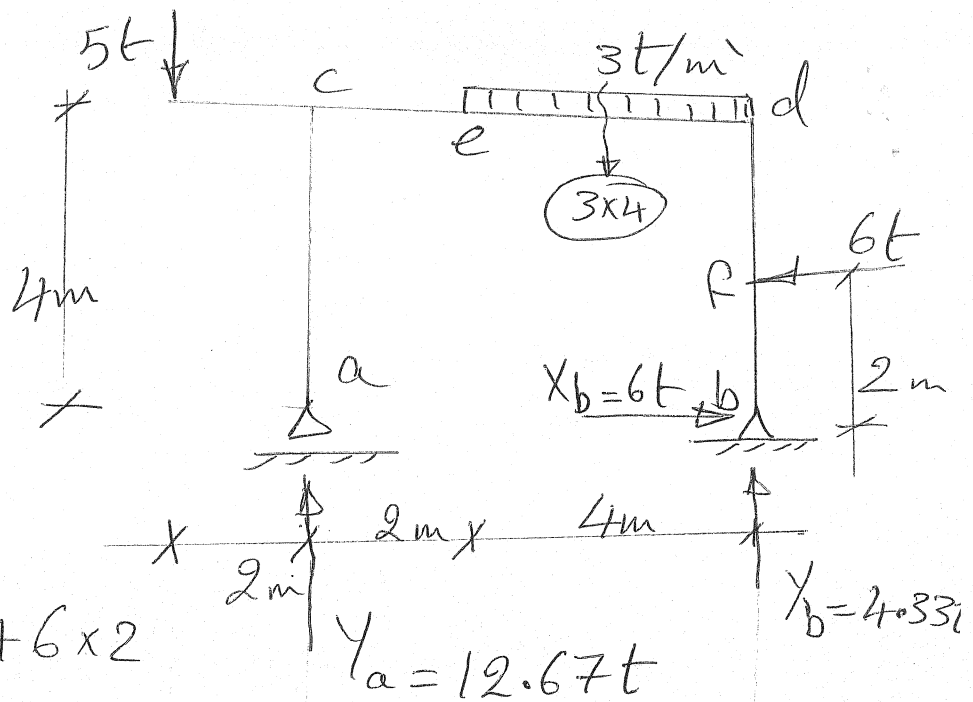 5t
3t/m'
c
d
e
3×4
6t
f
4m
a
X_b=6t
b
2m
2m
4m
2m
+6×2
Y_a=12.67t
Y_b=4.33t